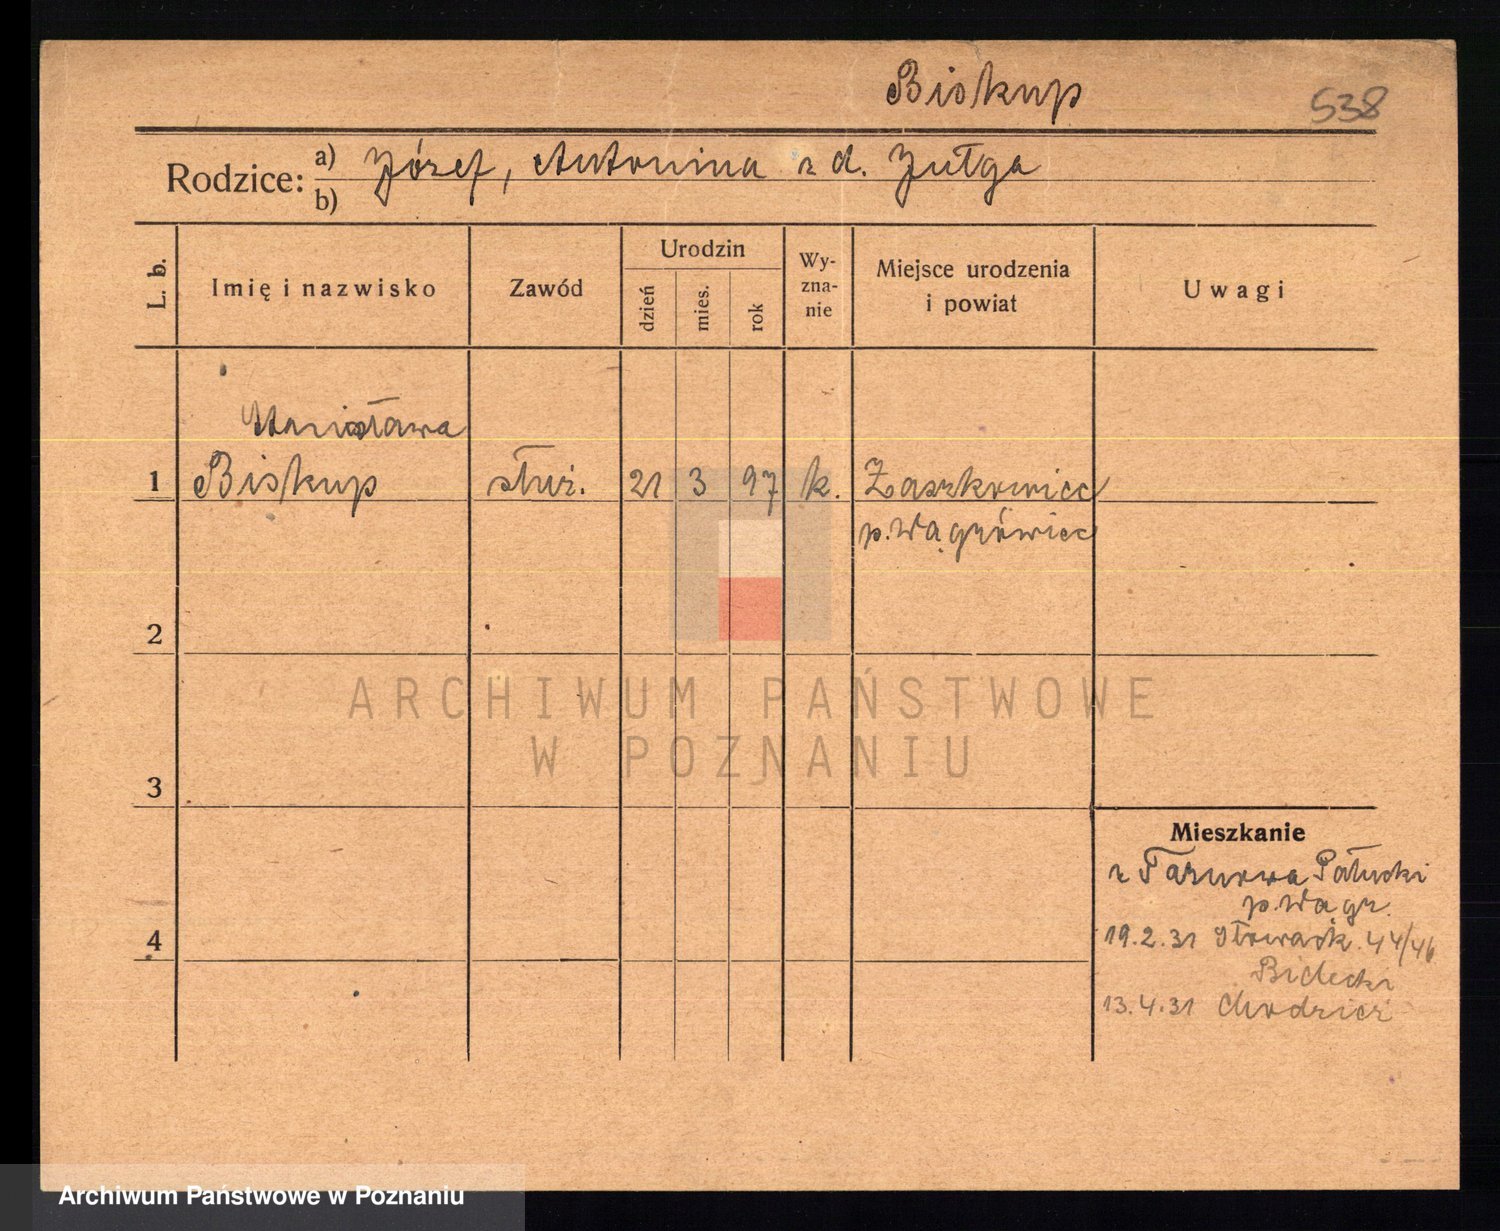 Biskup
538
Rodzice: a) Józef, Antonina z d. Jułga
b)
L. b.
Imię i nazwisko
Zawód
Urodzin
dzień
mies.
rok
Wy-
zna-
nie
Miejsce urodzenia
i powiat
Uwagi
Stanisława
1 Biskup służ. 21 3 97 k. Zaszkowice
p. Wągrówiec
2
3
4
ARCHIWUM PAŃSTWOWE
W POZNANIU
Mieszkanie
z Tarnowa Pałucki
p. Wągr.
19.2.31 Słowack. 44/46
Bidecki
13.4.31 Chodzież
Archiwum Państwowe w Poznaniu